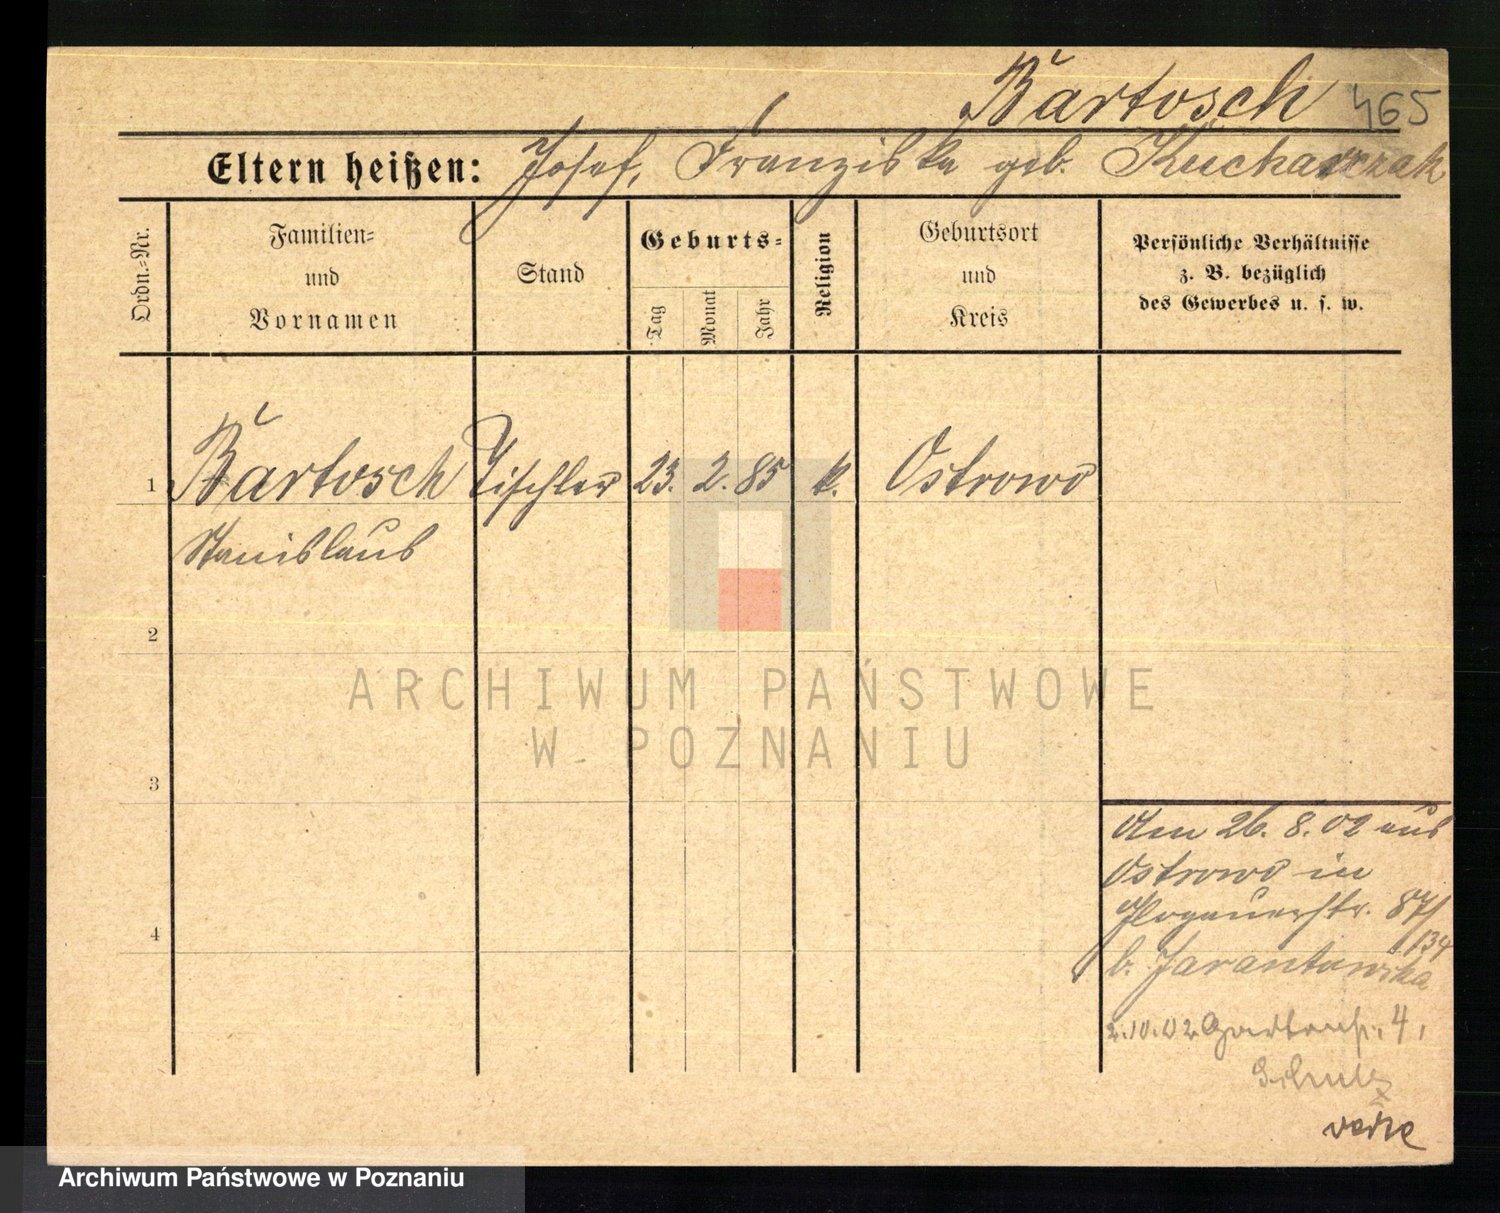 Bartosch 465
Eltern heißen: Josef, Franziska geb. Kucharczak
Ordn.-Nr.
Familien-
und
Vornamen
Stand
Geburts-
Tag
Monat
Jahr
Religion
Geburtsort
und
Kreis
Persönliche Verhältnisse
z. B. bezüglich
des Gewerbes u. s. w.
1 Bartosch Tischler 23. 2. 85 k. Ostrowo
Stanislaus
2
3
4
Am 26. 8. 02 aus
Ostrowo in
Glogauerstr. 87/
134
b. Jarantowska
2.10.02 Gartenstr. 4,
Schulz
ARCHIWUM PAŃSTWOWE
W POZNANIU
Archiwum Państwowe w Poznaniu